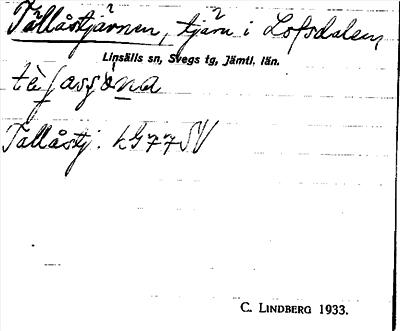 Tallåstjärnen, tjärn i Lofsdalen,
Linsälls sn, Svegs tg, Jämtl. län.
Tallåstj. LG77SV
C. LINDBERG 1933.